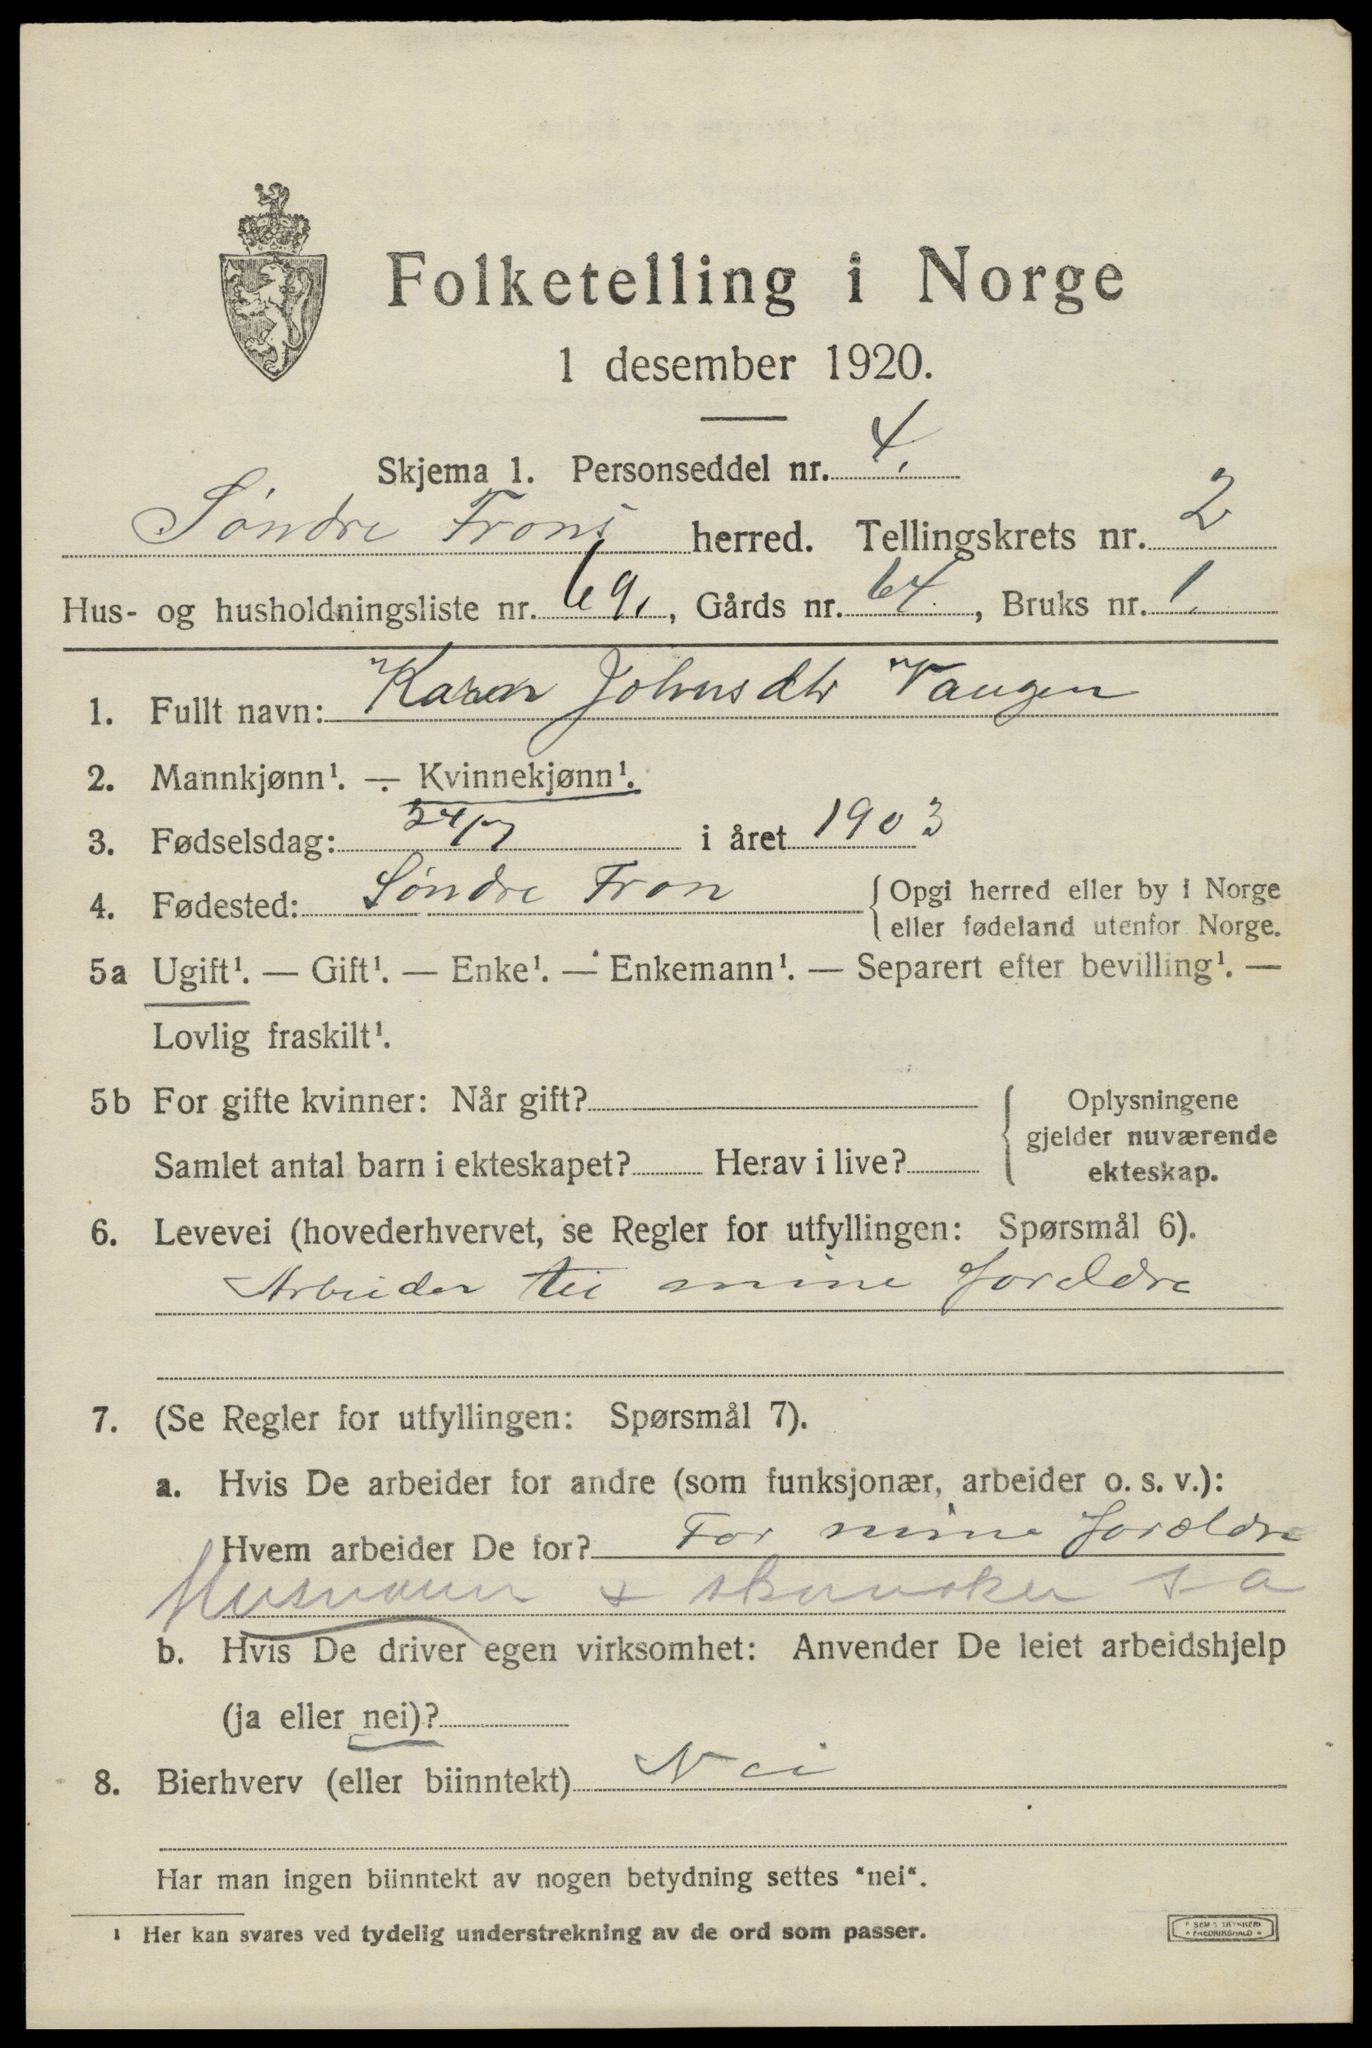 Folketelling i Norge
1 desember 1920.
Skjema 1. Personseddel nr. 4.
Søndre Frons herred. Tellingskrets nr. 2
Hus- og husholdningsliste nr. 69., Gårds nr. 64., Bruks nr. 1.
1. Fullt navn: Karen Johnsdtr Vangen
2. Mannkjønn¹. — Kvinnekjønn¹.
3. Fødselsdag: 24/7 i året 1903
4. Fødested: Søndre Fron {Opgi herred eller by i Norge
eller fødeland utenfor Norge.
5a Ugift¹. — Gift¹. — Enke¹. — Enkemann¹. — Separert efter bevilling¹. —
Lovlig fraskilt¹.
5b For gifte kvinner: Når gift? { Oplysningene
gjelder nuværende
Samlet antal barn i ekteskapet? Herav i live? ekteskap.
6. Levevei (hovederhvervet, se Regler for utfyllingen: Spørsmål 6).
Arbeider til mine foreldre
7. (Se Regler for utfyllingen: Spørsmål 7).
a. Hvis De arbeider for andre (som funksjonær, arbeider o. s. v.):
Hvem arbeider De for? For mine forældre
Husmann + s a
b. Hvis De driver egen virksomhet: Anvender De leiet arbeidshjelp
(ja eller nei)?
8. Bierhverv (eller biinntekt) Nei
Har man ingen biinntekt av nogen betydning settes "nei".
¹ Her kan svares ved tydelig understrekning av de ord som passer.
SEM & TRYKKERI
FREDRIKSHALD